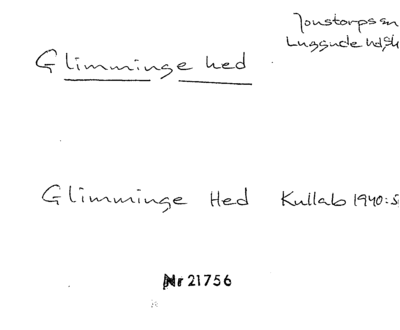 Jonstorps sn
Luggude hd, Sk
Glimminge hed
Glimminge Hed Kullab 1940: S
Nr 21756